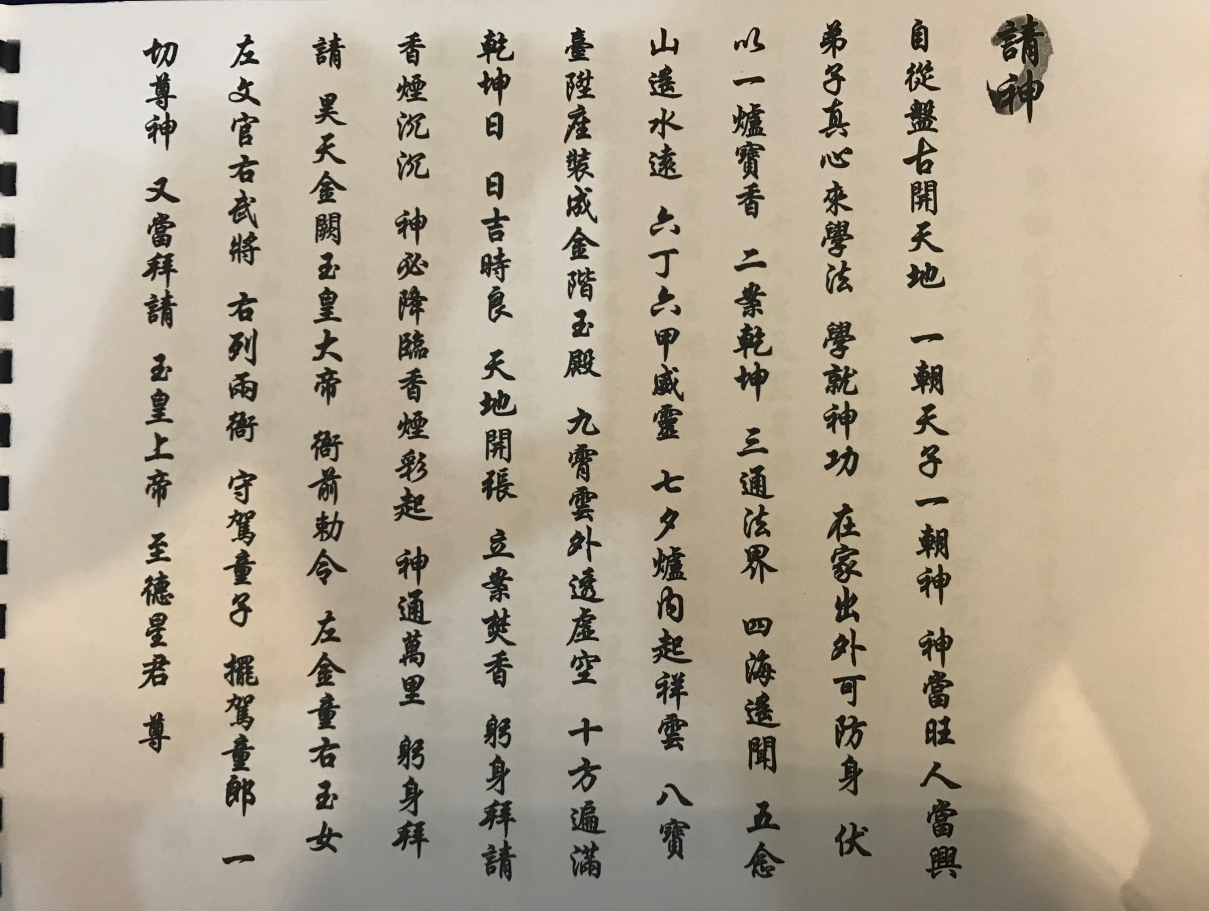 請神
自從盤古開天地 一朝天子一朝神 神當旺人當興
弟子真心來學法 學就神功 在家出外可防身 伏
以一爐寶香 二業乾坤 三通法界 四海遙聞 五念
山遙水遠 六丁六甲威靈 七夕爐內起祥雲 八寶
臺陞座裝成金階玉殿 九霄雲外透虛空 十方遍滿
乾坤日 日吉時良 天地開張 立案焚香 躬身拜請
香煙沉沉 神必降臨香煙彩起 神通萬里 躬身拜
請 昊天金闕玉皇大帝 衙前勅令 左金童右玉女
左文官右武將 右列兩衙 守駕童子 擺駕童郎 一
切尊神 又當拜請 玉皇上帝 至德星君 尊